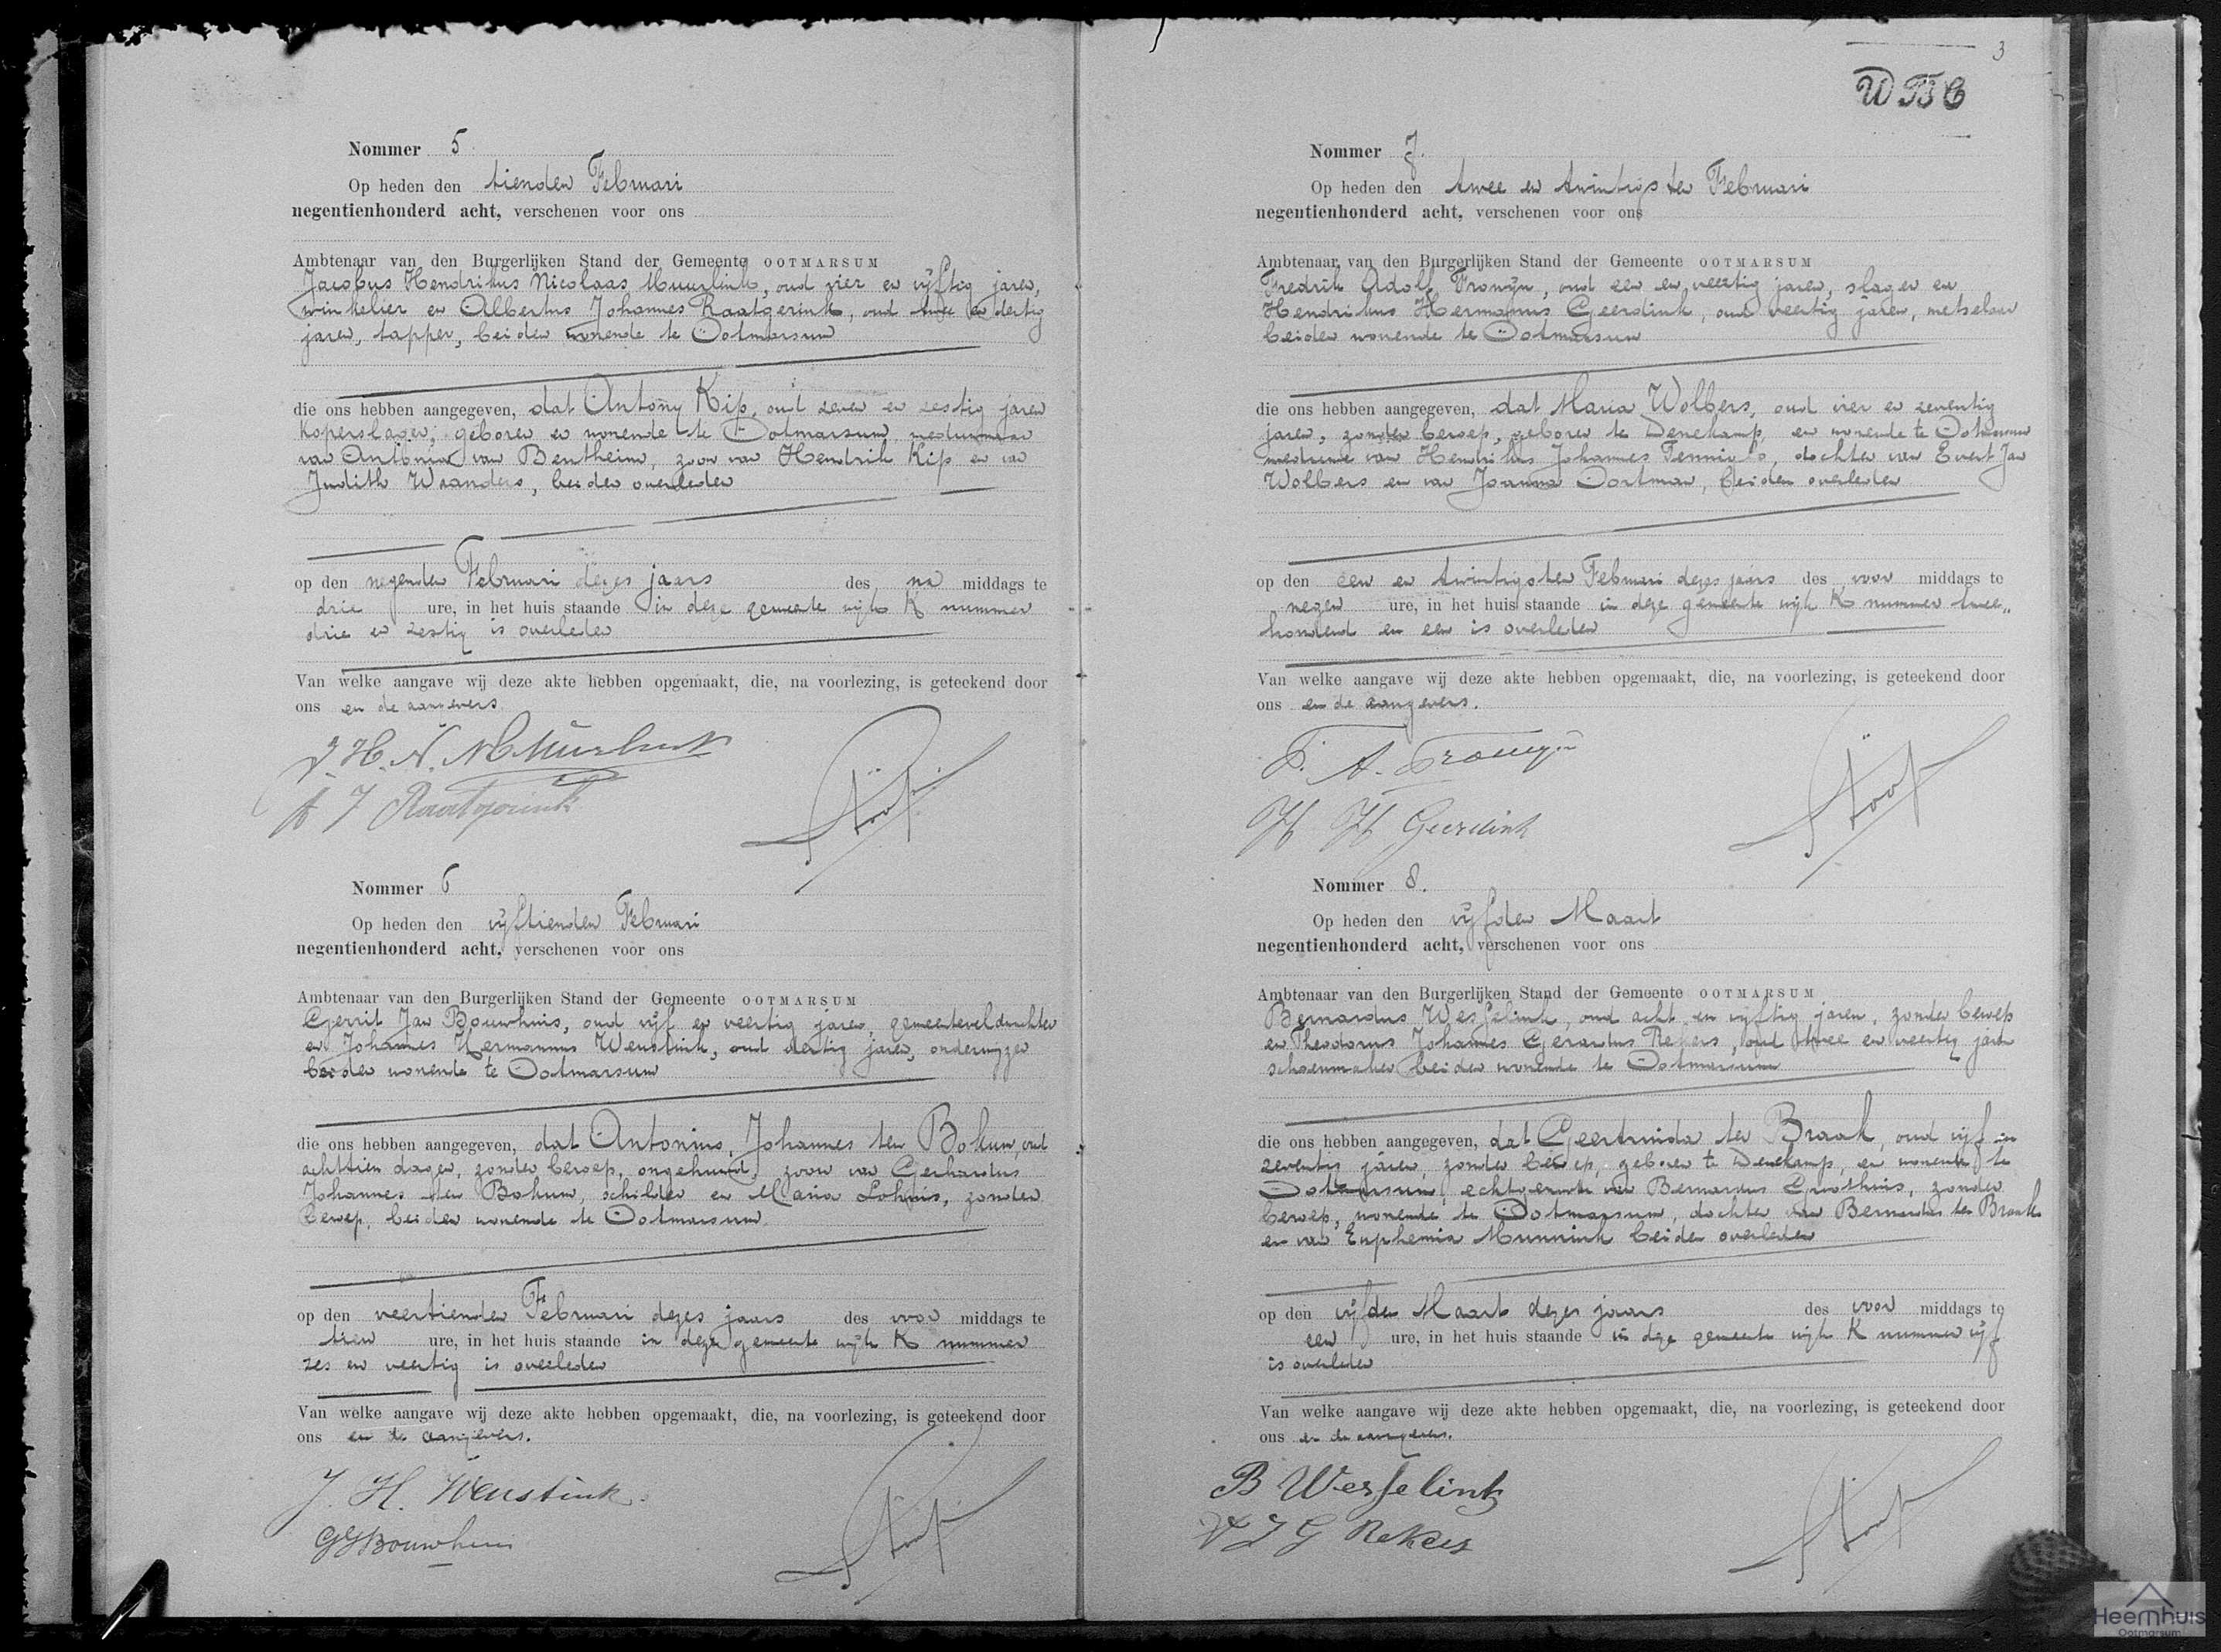 Nommer 5
Op heden den tienden Februari
negentienhonderd acht, verschenen voor ons
Ambtenaar van den Burgerlijken Stand der Gemeente OOTMARSUM
Jacobus Hendrikus Nicolaas Muurlink, oud vier en vijftig jaren,
winkelier en Albertus Johannes Raatgerink, oud twee en dertig
jaren, tapper, beiden wonende te Ootmarsum
die ons hebben aangegeven, dat Antony Kip, oud zeven en zestig jaren
koperslager, geboren en wonende te Ootmarsum weduwnaar
van Antonia van Bentheim, zoon van Hendrik Kip en van
Judith Waanders, beiden overleden
op den negenden Februari dezes jaars des na middags te
drie ure, in het huis staande in deze gemeente wijk K nummer
drie en zestig is overleden
Van welke aangave wij deze akte hebben opgemaakt, die, na voorlezing, is geteekend door
ons en de aangevers.
J. H. N. Muurlink
A J Raatgerink
Nommer 6
Op heden den vijftienden Februari
negentienhonderd acht, verschenen voor ons
Ambtenaar van den Burgerlijken Stand der Gemeente OOTMARSUM
Gerrit Jan Bouwhuis, oud vijf en veertig jaren, gemeenteveldwachter
en Johannes Hermannus Weustink, oud dertig jaren, onderwijzer
beiden wonende te Ootmarsum
die ons hebben aangegeven, dat Antonius Johannes ten Bokum, oud
achttien dagen, zonder beroep, ongehuwd, zoon van Gerhardus
Johannes ten Bokum, schilder en Maria Lohuis, zonder
beroep, beiden wonende te Ootmarsum.
op den veertienden Februari dezes jaars des voor middags te
tien ure, in het huis staande in deze gemeente wijk K nummer
zes en veertig is overleden
Van welke aangave wij deze akte hebben opgemaakt, die, na voorlezing, is geteekend door
ons en de aangevers.
J. H. Weustink.
GJ Bouwhuis
3
Nommer 7.
Op heden den twee en twintigsten Februari
negentienhonderd acht, verschenen voor ons
Ambtenaar van den Burgerlijken Stand der Gemeente OOTMARSUM
Fredrik Adolf Fronijn, oud een en veertig jaren, slager en
Hendrikus Hermannus Geerdink, oud veertig jaren, metselaar
beiden wonende te Ootmarsum
die ons hebben aangegeven, dat Maria Wolbers, oud vier en zeventig
jaren, zonder beroep, geboren te Denekamp, en wonende te Ootmarsum
weduwe van Hendrikus Johannes Tennie's, dochter van Evert Jan
Wolbers en van Joanna Oortman, beiden overleden
op den een en twintigsten Februari dezes jaars des voor middags te
negen ure, in het huis staande in deze gemeente wijk K nummer twee„
honderd en een is overleden
Van welke aangave wij deze akte hebben opgemaakt, die, na voorlezing, is geteekend door
ons en de aangevers.
F. A. Fronijn
H H Geerdink
Nommer 8.
Op heden den vijfden Maart
negentienhonderd acht, verschenen voor ons
Ambtenaar van den Burgerlijken Stand der Gemeente OOTMARSUM
Bernardus Wesselink, oud acht en vijftig jaren, zonder beroep
en Theodorus Johannes Gerardus Rekers, oud twee en veertig jaren
schoenmaker beiden wonende te Ootmarsum
die ons hebben aangegeven, dat Geertruida ter Braak, oud vijf en
zeventig jaren, zonder beroep, geboren te Denekamp, en wonende te
Ootmarsum, echtgenoote van Bernardus Groothuis, zonder
beroep, wonende te Ootmarsum, dochter van Bernardus ter Braak
en van Euphemia Munnink beiden overleden
op den vijfden Maart dezes jaars des voor middags te
een ure, in het huis staande in deze gemeente wijk K nummer vijf
is overleden
Van welke aangave wij deze akte hebben opgemaakt, die, na voorlezing, is geteekend door
ons en de aangevers.
B Wesselink
T J G Rekers
Heemhuis
Ootmarsum